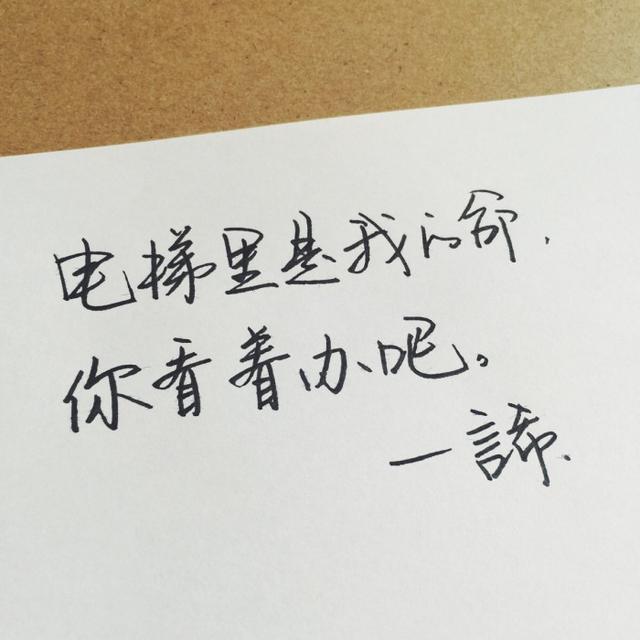 电梯里是我的爷,
你看着办吧。
一諦.